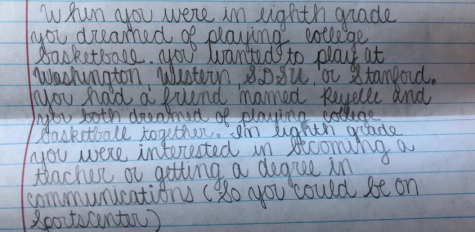 When you were in eighth grade
you dreamed of playing college
basketball. you wanted to play at
Washington, Western, SDSU, or Stanford.
You had a friend named Reyelle and
you both dreamed of playing college
basketball together. In eighth grade
you were interested in becoming a
teacher or getting a degree in
communications (so you could be on
Sportscenter)